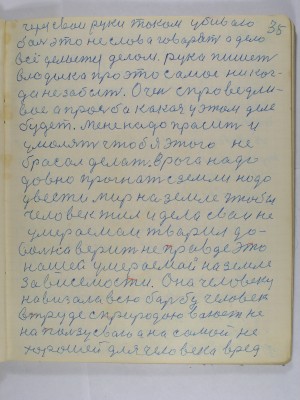 35
через свои руки током убивало
бал это не слова гаворят а дело
всё делите делом. рука пишет
владыка про это самое ни ког-
да незабыт. Очн справедли-
вое а прозба какая у этом деле
будет. Мене надо прасит и
умолят чтобы этого не
брасал делат. врога надо
довно прогнат с земли надо
увести. мир на земле чтобы
человек жил и дела сваи не
умераемаи тварил до-
вольна верит не правде это
нашей умераемай на земле
зависемости. Она человеку
навизала всю барбу человек
втруде с природаю ваюет не
на ползу сваю а на самой не
хорошей для человека вред-